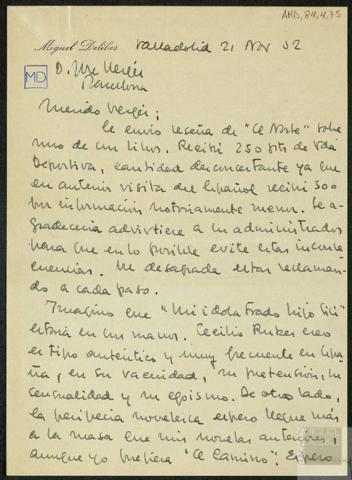 AMD, 84, 4, 75
Miguel Delibes Valladolid 21 Nov 52
MD
D. José Vergés
Barcelona
Querido Vergés:
Le envío reseña de "El Norte" sobre
uno de sus libros. Recibí 250 pts de Vida
Deportiva, cantidad desconcertante ya que
en anterior visita del Español recibí 300
por información notoriamente menor. Le a-
gradecería advirtiese a su administrador
para que en lo posible evite estas incon-
secuencias. Me desagrada estar reclaman-
do a cada paso.
Imagino que "Mi idolatrado hijo Sisí"
estará en sus manos. Cecilio Rubes creo
es tipo auténtico y muy frecuente en Espa-
ña, en su vacuidad, su pretensión, su
sensualidad y su egoísmo. De otro lado,
la peripecia novelesca espero llegue más
a la masa que mis novelas anteriores,
aunque yo prefiera "El Camino". Espero